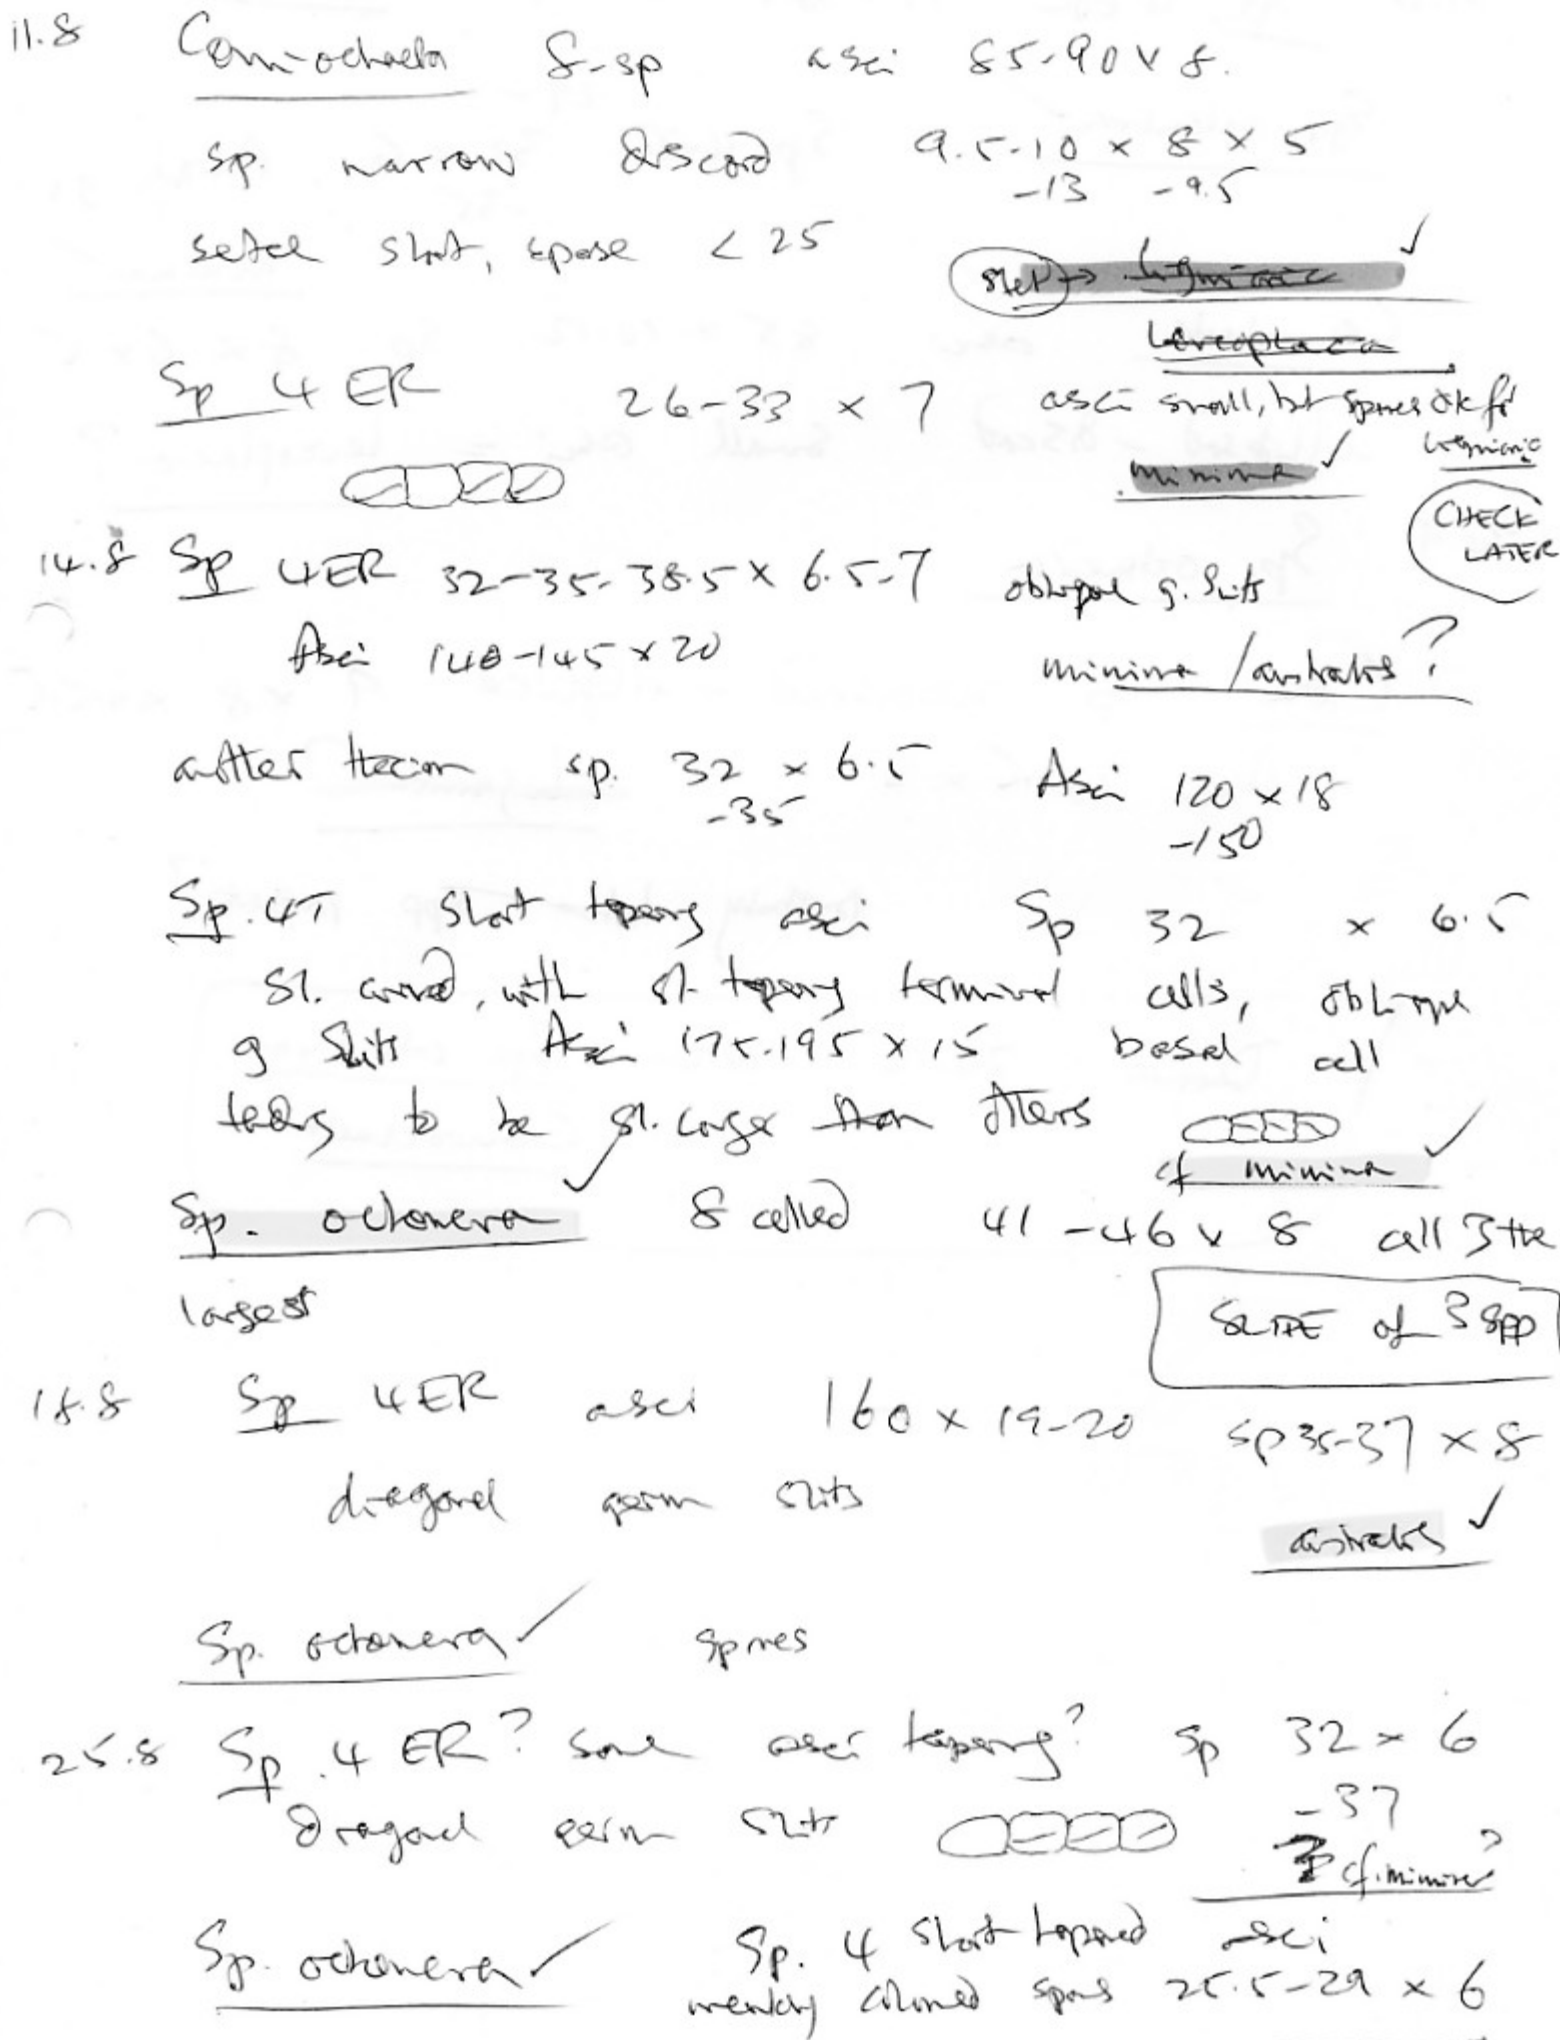 11.8 Coniochaeta 8-sp asci 85-90 x 8.
sp. narrow discoid 9.5-10 x 8 x 5
-13 -9.5
setae short, sparse < 25
stet → ligniaria ✓
leucoplaca
Sp 4 ER 26-33 x 7 asci small, but spores ok for
ligniaria
minima ✓
CHECK
LATER
14.8 Sp 4ER 32-35-38.5 x 6.5-7 oblique g. slits
Asci 140-145 x 20
minima / australis ?
another thecium sp. 32 x 6.5 Asci 120 x 18
-35 -150
Sp. 4T short tapering asci Sp 32 x 6.5
sl. curved, with sl. tapering terminal cells, oblique
g slits Asci 175-195 x 15 basal cell
tending to be sl. larger than others
cf minima ✓
Sp. octomera ✓ 8 celled 41-46 x 8 cell 3 the
largest
SLIDE of 3 spp
18.8 Sp 4 ER asci 160 x 19-20 sp 35-37 x 8
diagonal germ slits
australis ✓
Sp. octomera ✓ spores
25.8 Sp. 4 ER? some asci tapering? Sp 32 x 6
-37
Diagonal germ slits
cf. minima?
Sp. octomera ✓ Sp. 4 short tapered asci
coloured spores 25.5-29 x 6